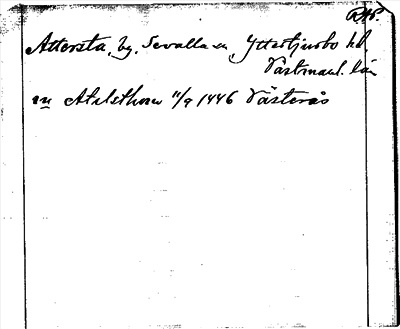 Attersta, by, Sevalla sn, Yttertjurbo hd
Västmanl. län
in Atalsthorp 11/9 1446 Västerås